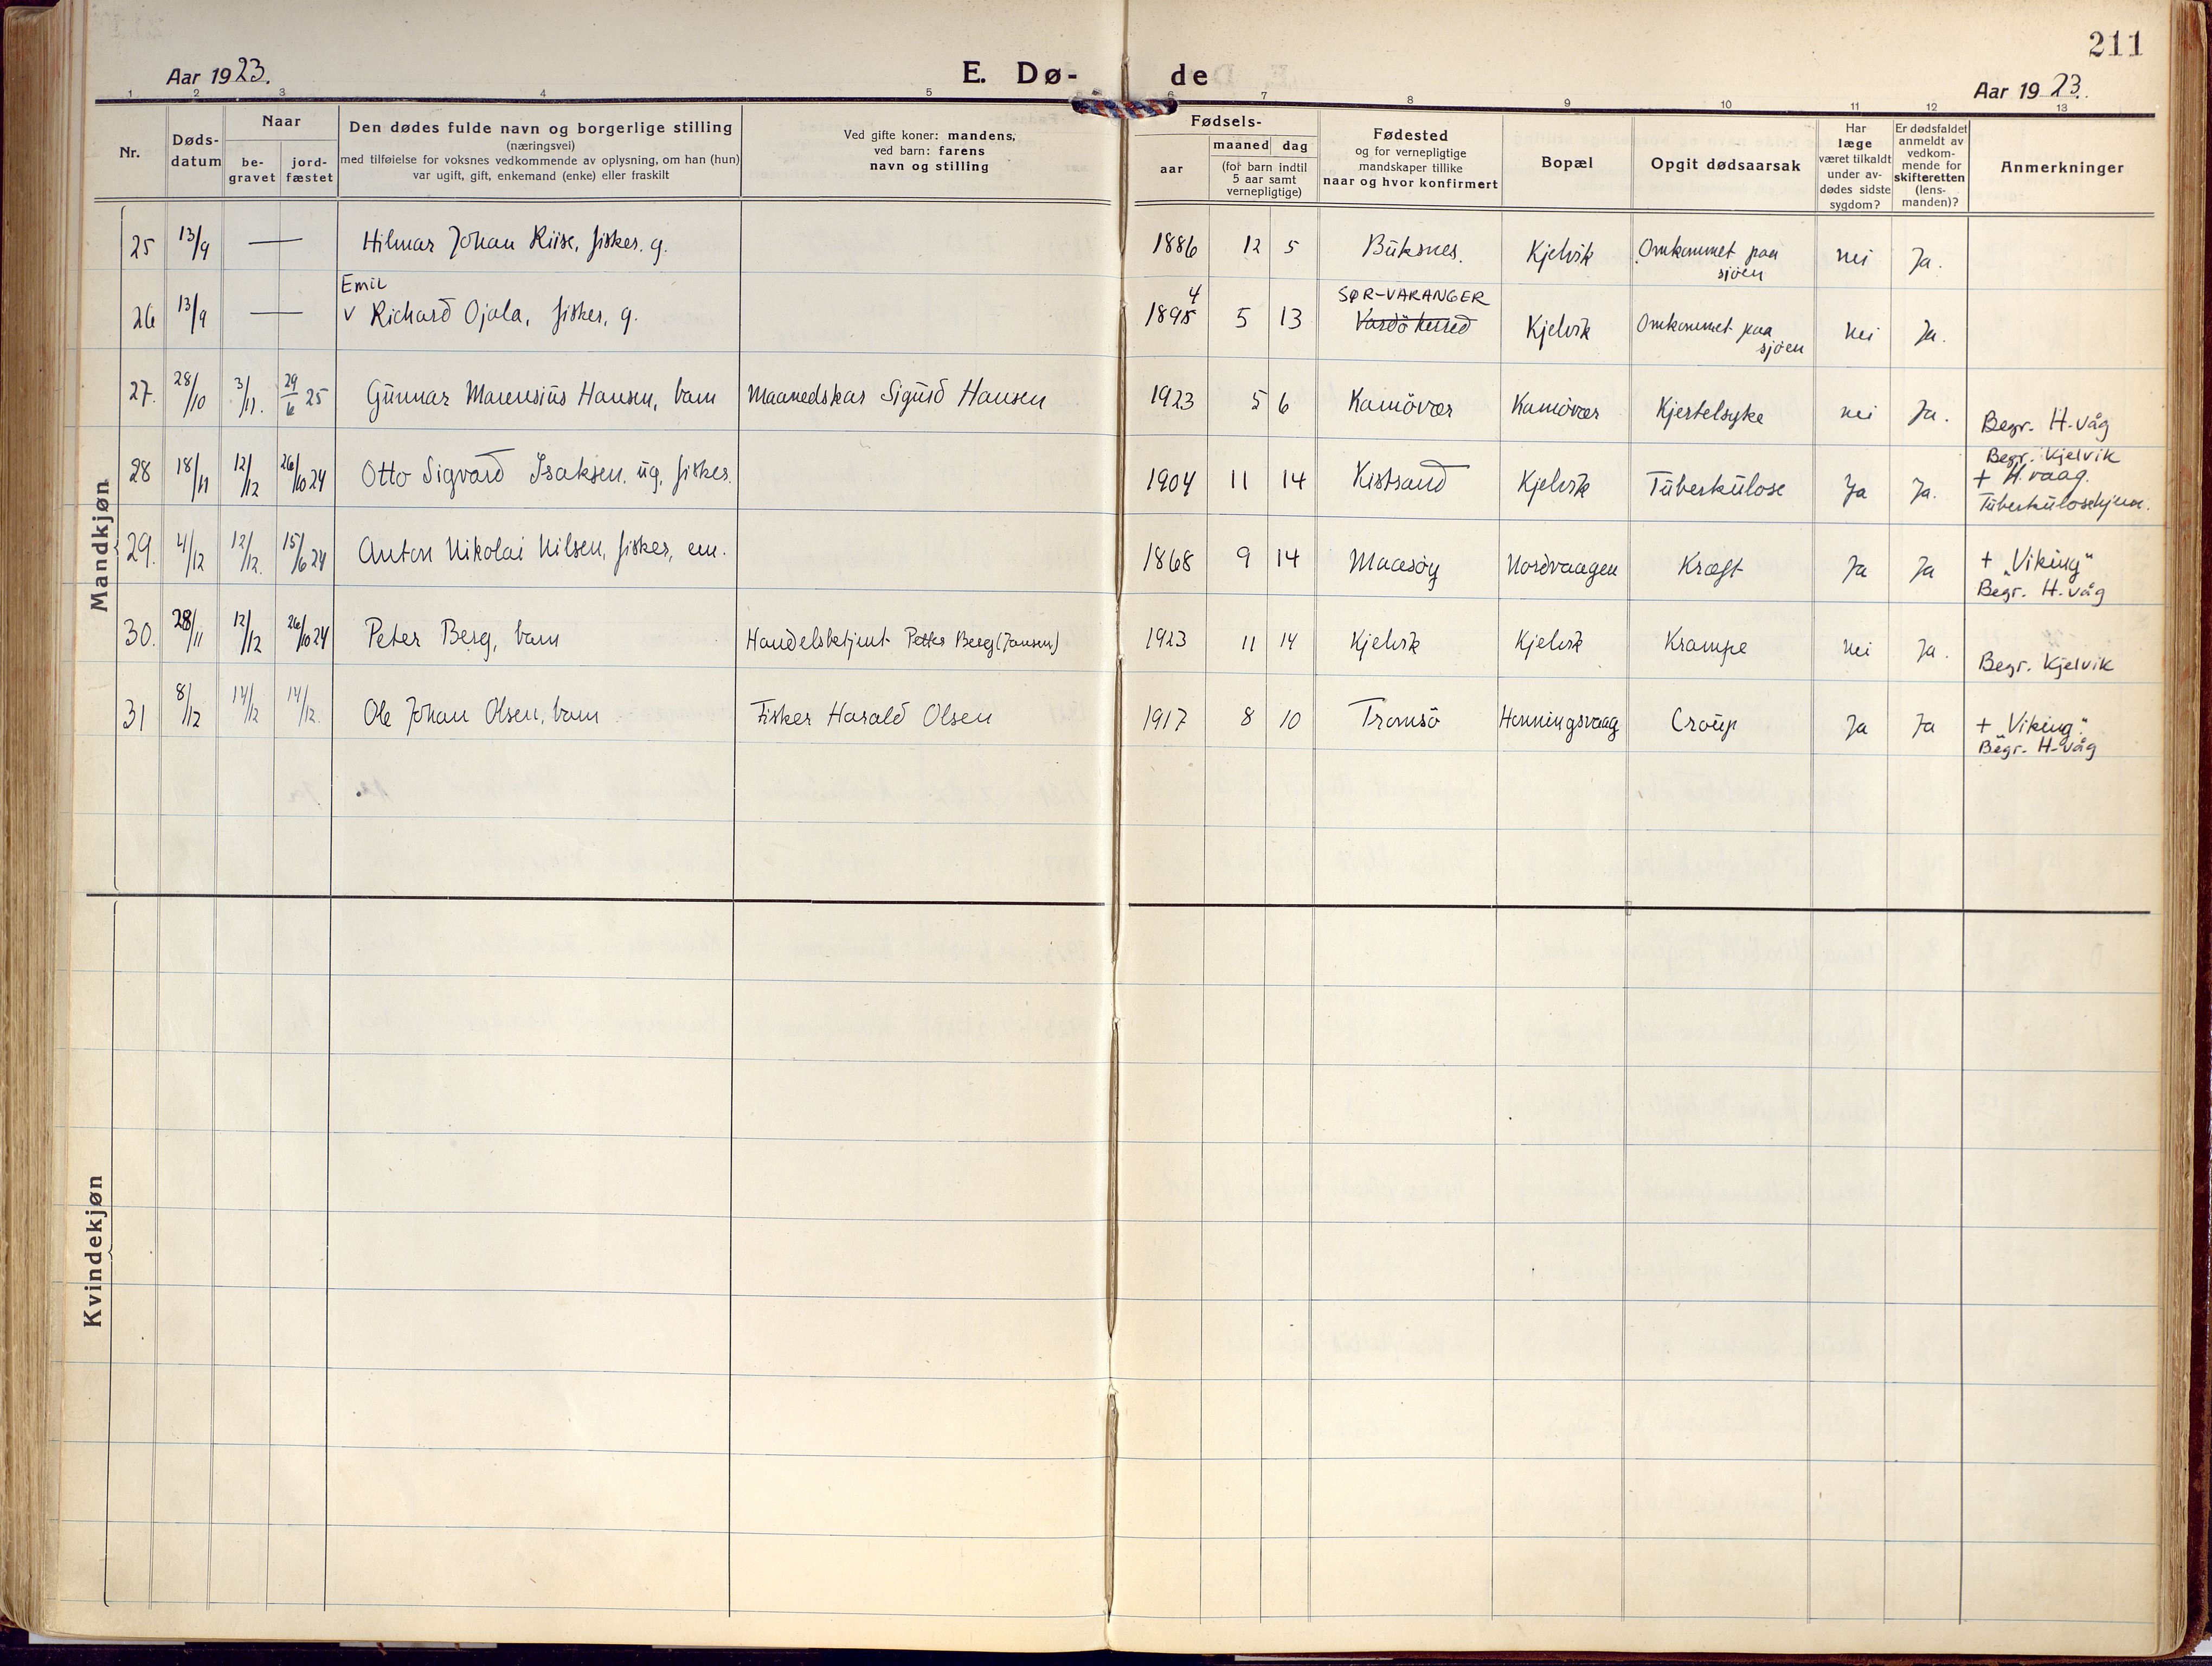 211
Aar 1923.
E. Dø-
de
Aar 1923.
1 2 3 4 5 6 7 8 9 10 11 12 13
Nr.
Døds-
datum
Naar
be-
gravet
jord-
fæstet
Den dødes fulde navn og borgerlige stilling
(næringsvei)
med tilføielse for voksnes vedkommende av oplysning, om han (hun)
var ugift, gift, enkemand (enke) eller fraskilt
Ved gifte koner: mandens,
ved barn: farens
navn og stilling
Fødsels-
aar
maaned dag
(for barn indtil
5 aar samt
vernepligtige)
Fødested
og for vernepligtige
mandskaper tillike
naar og hvor konfirmert
Bopæl
Opgit dødsaarsak
Har
læge
været tilkaldt
under av-
dødes sidste
sygdom?
Er dødsfaldet
anmeldt av
vedkom-
mende for
skifteretten
(lens-
manden)?
Anmerkninger
Mandkjøn
25 13/9 — Hilmar Johan Riise, fisker, g. 1886 12 5 Buksnes. Kjelvik Omkommet paa
sjøen nei Ja.
Emil
4 SØR-VARANGER
26 13/9 — v Richard Ojala, fisker, g. 1895 5 13 Vardö herred Kjelvik Omkommet paa
sjøen nei Ja.
27. 28/10 3/11. 29/6 25 Gunnar Marensius Hansen, barn Maanedskar Sigurd Hansen 1923 5 6 Kamövær Kamövær Kjertelsyke nei Ja. Begr. H-våg
28 18/11 12/12 26/10 24 Otto Sigvard Isaksen, ug. fisker. 1904 11 14 Kistrand Kjelvik Tuberkulose Ja Ja. Begr. Kjelvik
+ H.vaag.
Tuberkulosehjem.
29. 4/12 12/12. 15/6 24 Anton Nikolai Nilsen, fisker, em. 1868 9 14 Maasöy Nordvaagen Kræft Ja Ja + „Viking"
Begr. H-våg
30. 28/11 12/12 26/10 24 Peter Berg, barn Handelsbetjent Petter Berg (Jansen) 1923 11 14 Kjelvik Kjelvik Krampe nei Ja. Begr. Kjelvik
31 8/12 14/12 14/12. Ole Johan Olsen, barn Fisker Harald Olsen 1917 8 10 Tromsö Honningsvaag Croup Ja Ja + „Viking".
Begr. H-våg
Kvindekjøn